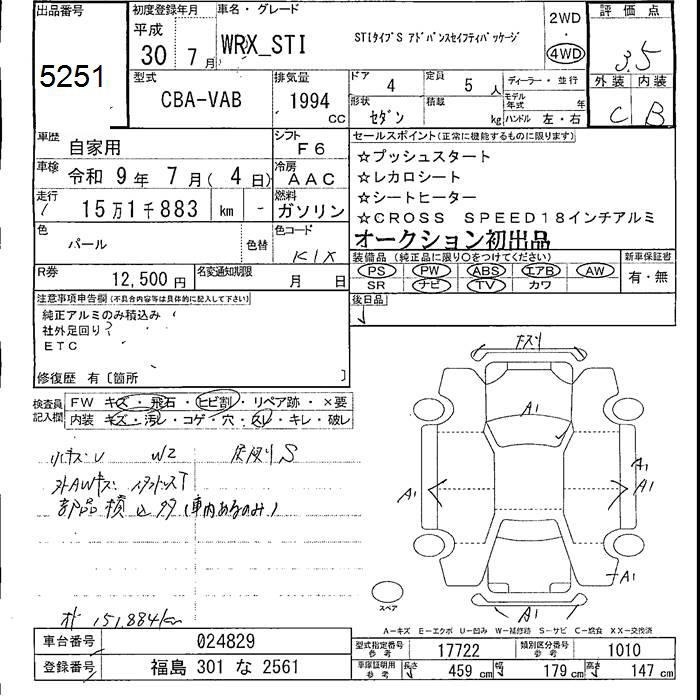 出品番号
5251
初度登録年月
平成
30 7月
車名・グレード
WRX_STI
STIタイプS アドバンスセイフティパッケージ
2WD
・
4WD
評価点
3.5
外装 内装
C B
型式
CBA-VAB
排気量
1994
CC
ドア
4
定員
5 人
形状
セダン
積載
kg
ディーラー・並行
モデル年式 年
ハンドル 左・右
車歴
自家用
シフト
F6
車検
令和 9年 7月( 4日)
冷房
AAC
走行
15万1千883 km -
燃料
ガソリン
色
パール
色替
色コード
K1X
R券
12,500円
名変通知期限
月 日
セールスポイント(正常に機能するものに限ります)
☆プッシュスタート
☆レカロシート
☆シートヒーター
☆CROSS SPEED18インチアルミ
オークション初出品
装備品 (純正品に限り〇をつけてください)
PS PW ABS エアB AW
SR ナビ TV カワ
新車保証書
有・無
後日品
注意事項申告欄(不具合内容等は具体的に記入して下さい)
純正アルミのみ積込み
社外足回り?
ETC
修復歴 有〔箇所 〕
検査員記入欄
FW キズ・飛石・ヒビ割・リペア跡・×要
内装 キズ・汚レ・コゲ・穴・スレ・キレ・破レ
W2
S
部品積込多(車内あるのみ)
151,884km
A1
A1
A1
A1
A1
A1
A1
スペア
A-キズ E-エクボ U-凹み W-補修跡 S-サビ C-腐食 XX-交換済
車台番号
024829
登録番号
福島 301 な 2561
型式指定番号
参考
17722
類別区分番号
参考
1010
車庫証明用
参考
長さ
459 cm
幅
179 cm
高さ
147 cm